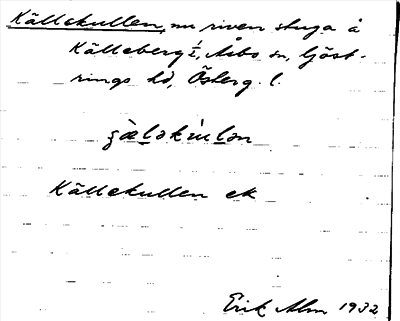 Källekullen, nu riven stuga å
Källeberg, Åsbo sn, Göst-
rings hd, Österg. l.
Källekullen ek
Erik Alm 1932